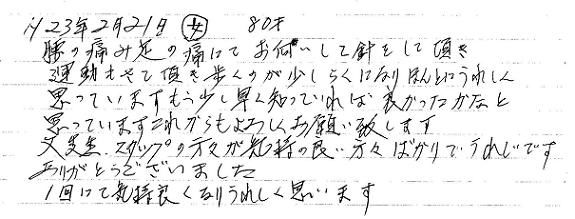 H23年2月21日 女 80才
腰の痛み足の痛にて お伺いして針をして頂き
運動もさせて頂き歩くのが少しらくになりほんとにうれしく
思っていますもう少し早く知っていれば良かったかなと
思っていますこれからもよろしくお願い致します
又先生、スタッフの方々が気持の良い方々ばかりでうれしいです
ありがとうございました
1回にて気持良くなりうれしく思います